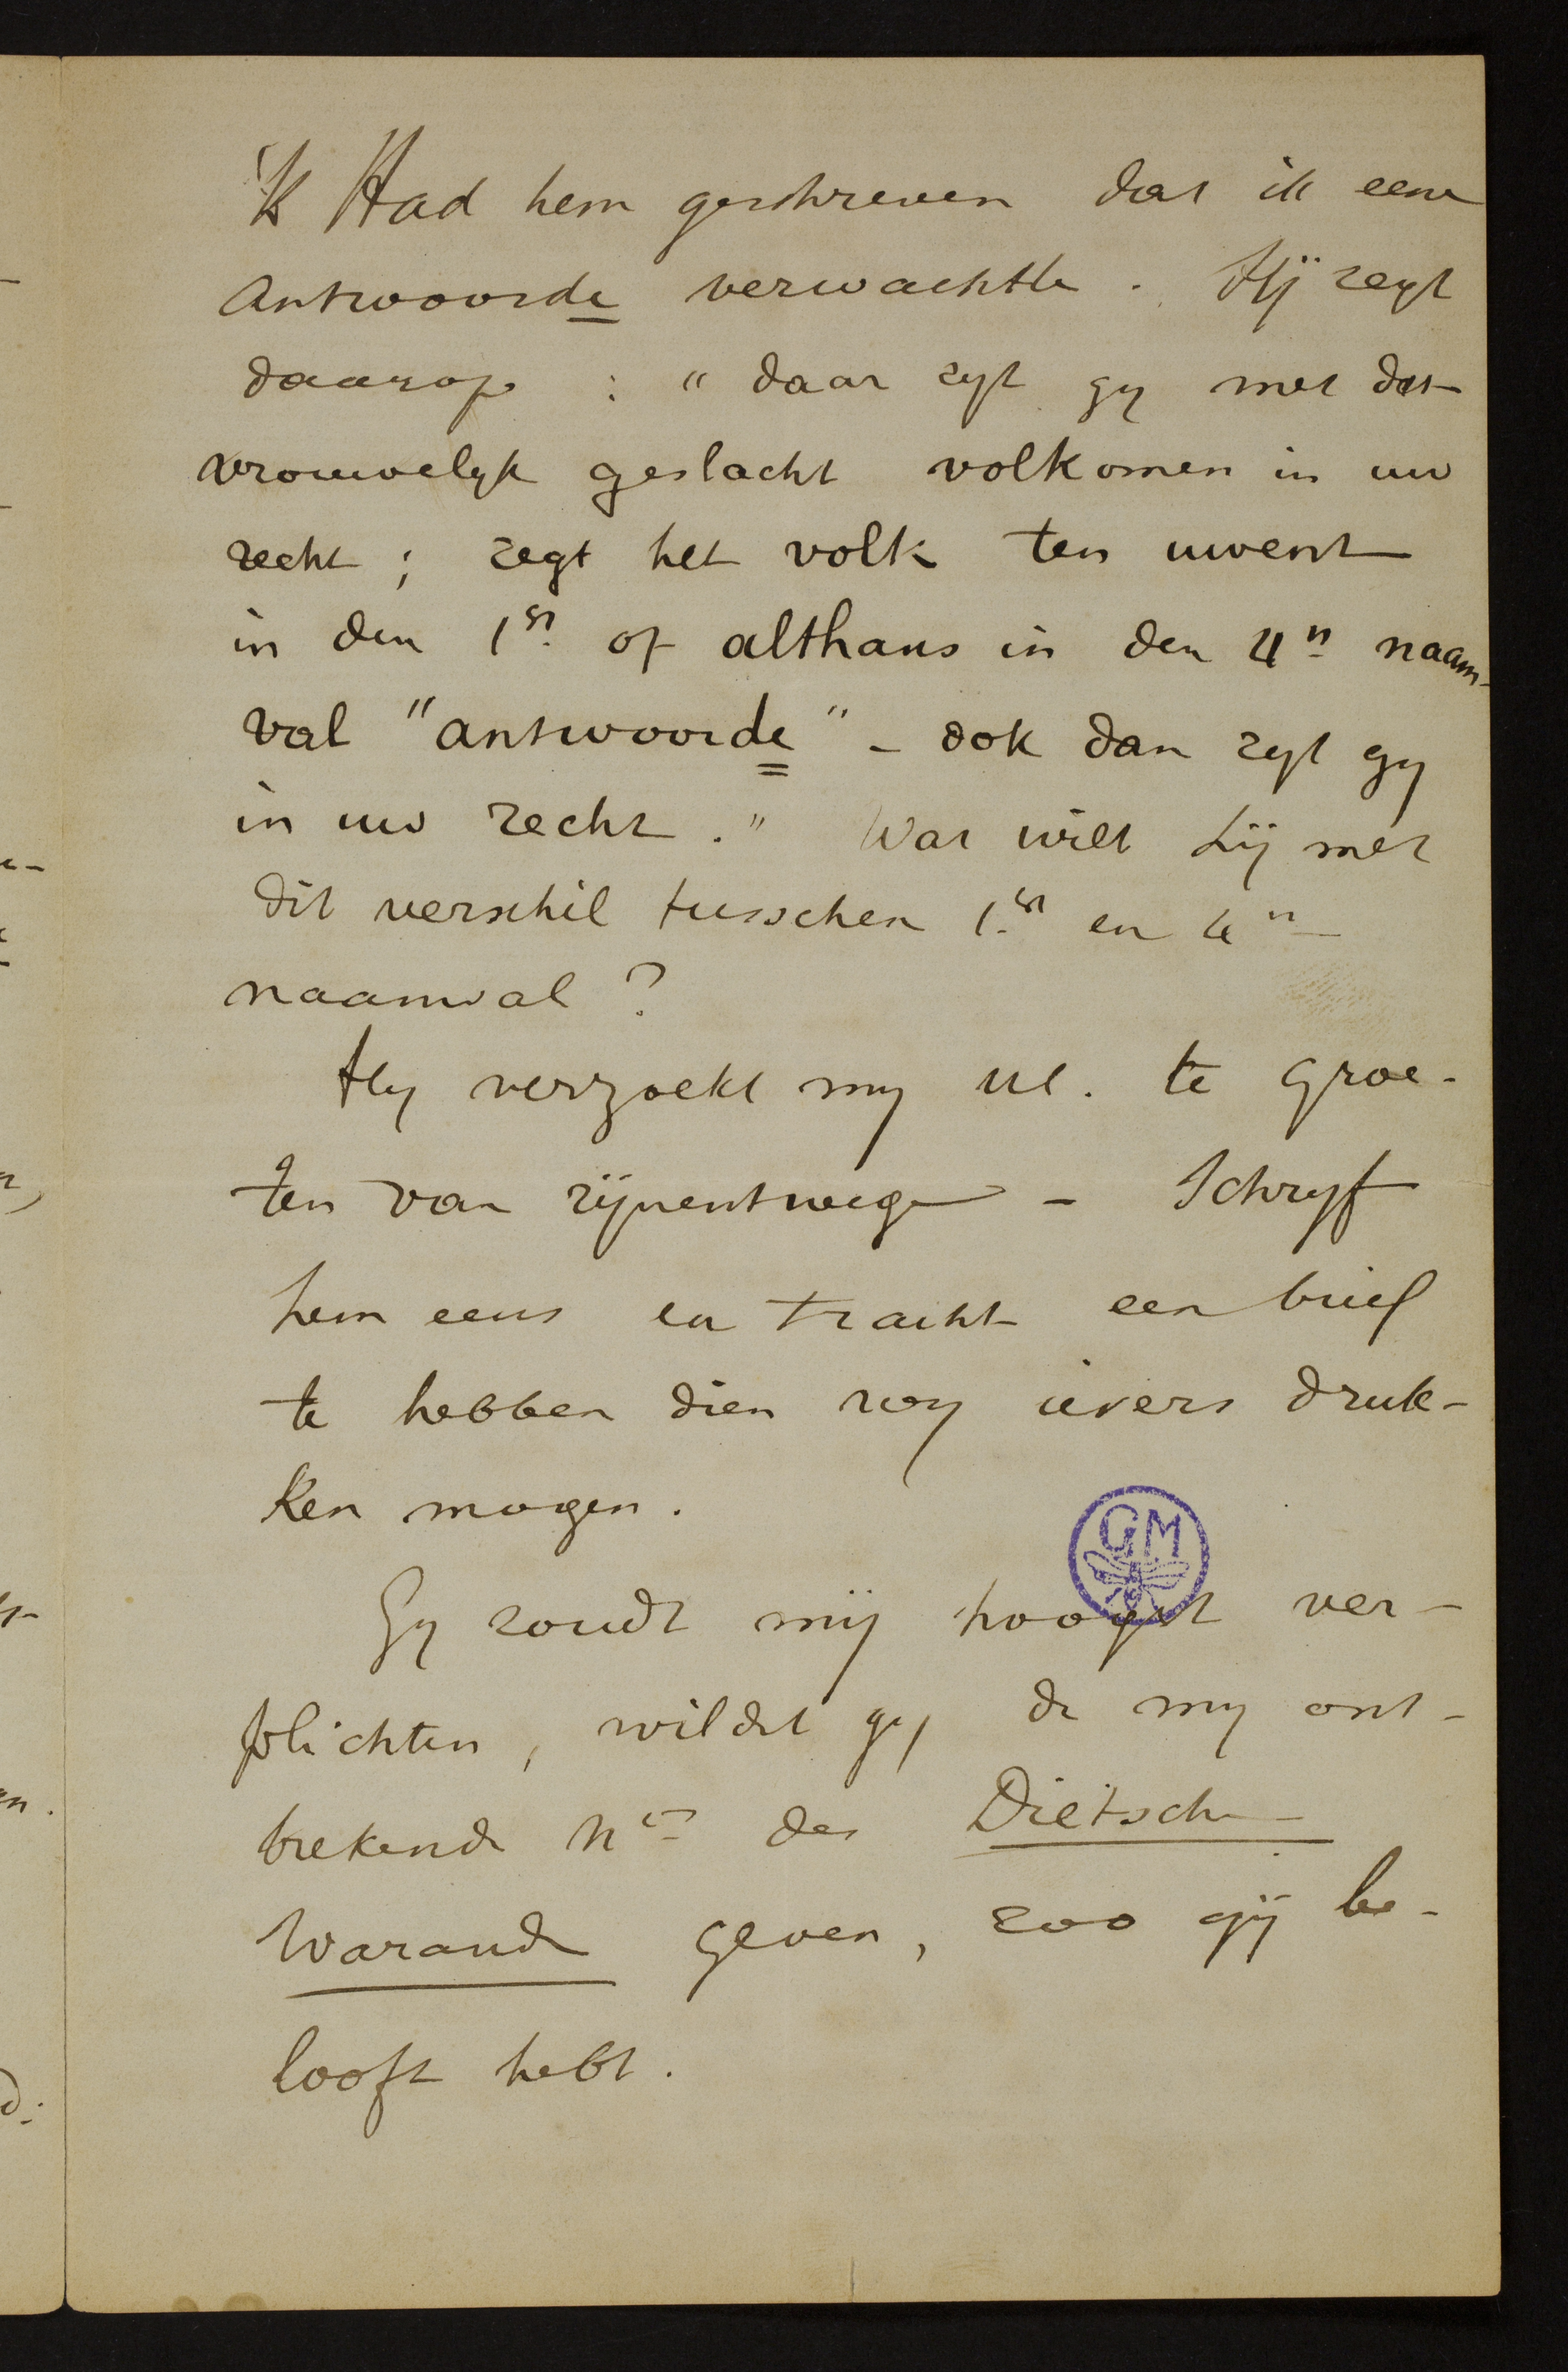 'k Had hem geschreven dat ik eene
antwoorde verwachtte. Hij zegt
daarop : "daar zyt gy met dat
vrouwelyk geslacht volkomen in uw
recht ; zegt het volk ten uwent
in den 1en of althans in den 4n naam-
val "antwoorde" - ook dan zyt gy
in uw recht." Wat wilt hij met
dit verschil tusschen 1en en 4n
naamval ?
Hy verzoekt my ul. te groe-
ten van zijnentwege - Schryf
hem eens en tracht een brief
te hebben dien wy ievers druk-
ken mogen.
GM
Gy zoudt mij hoogst ver-
plichten, wildet gy de my ont-
brekende Nrs der Dietsche
Warande geven, zoo gij be-
looft hebt.